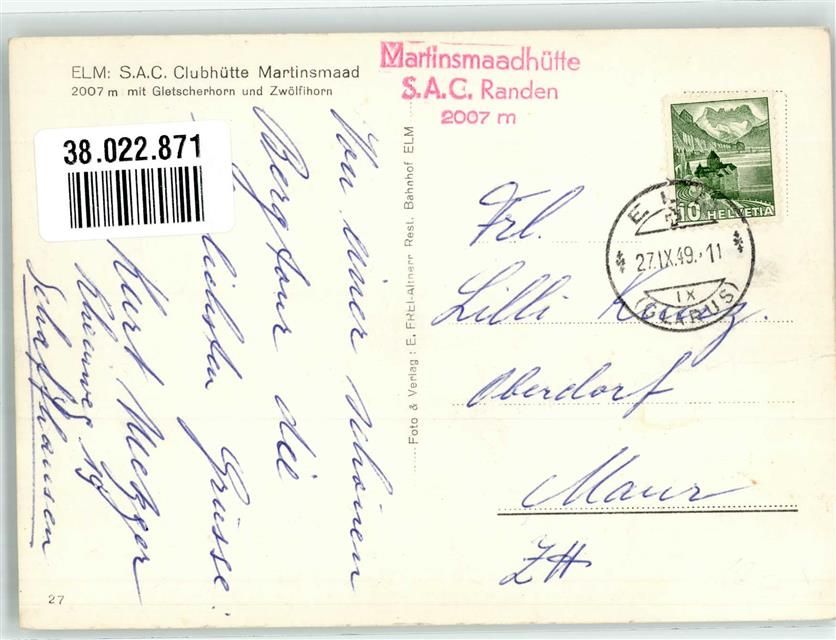 ELM: S.A.C. Clubhütte Martinsmaad
2007 m mit Gletscherhorn und Zwölfihorn
Martinsmaadhütte
S.A.C. Randen
2007 m
38.022.871
10 HELVETIA
27.IX.49.-11
IX
(GLARUS)
Foto & Verlag: E. FREI-Altherr Rest. Bahnhof ELM
Von einer schönen
Bergtour die
Grüsse
Kurt Metzger
Schaffhausen
Frl.
Lilli Kunz.
Oberdorf
Maur
ZH
27